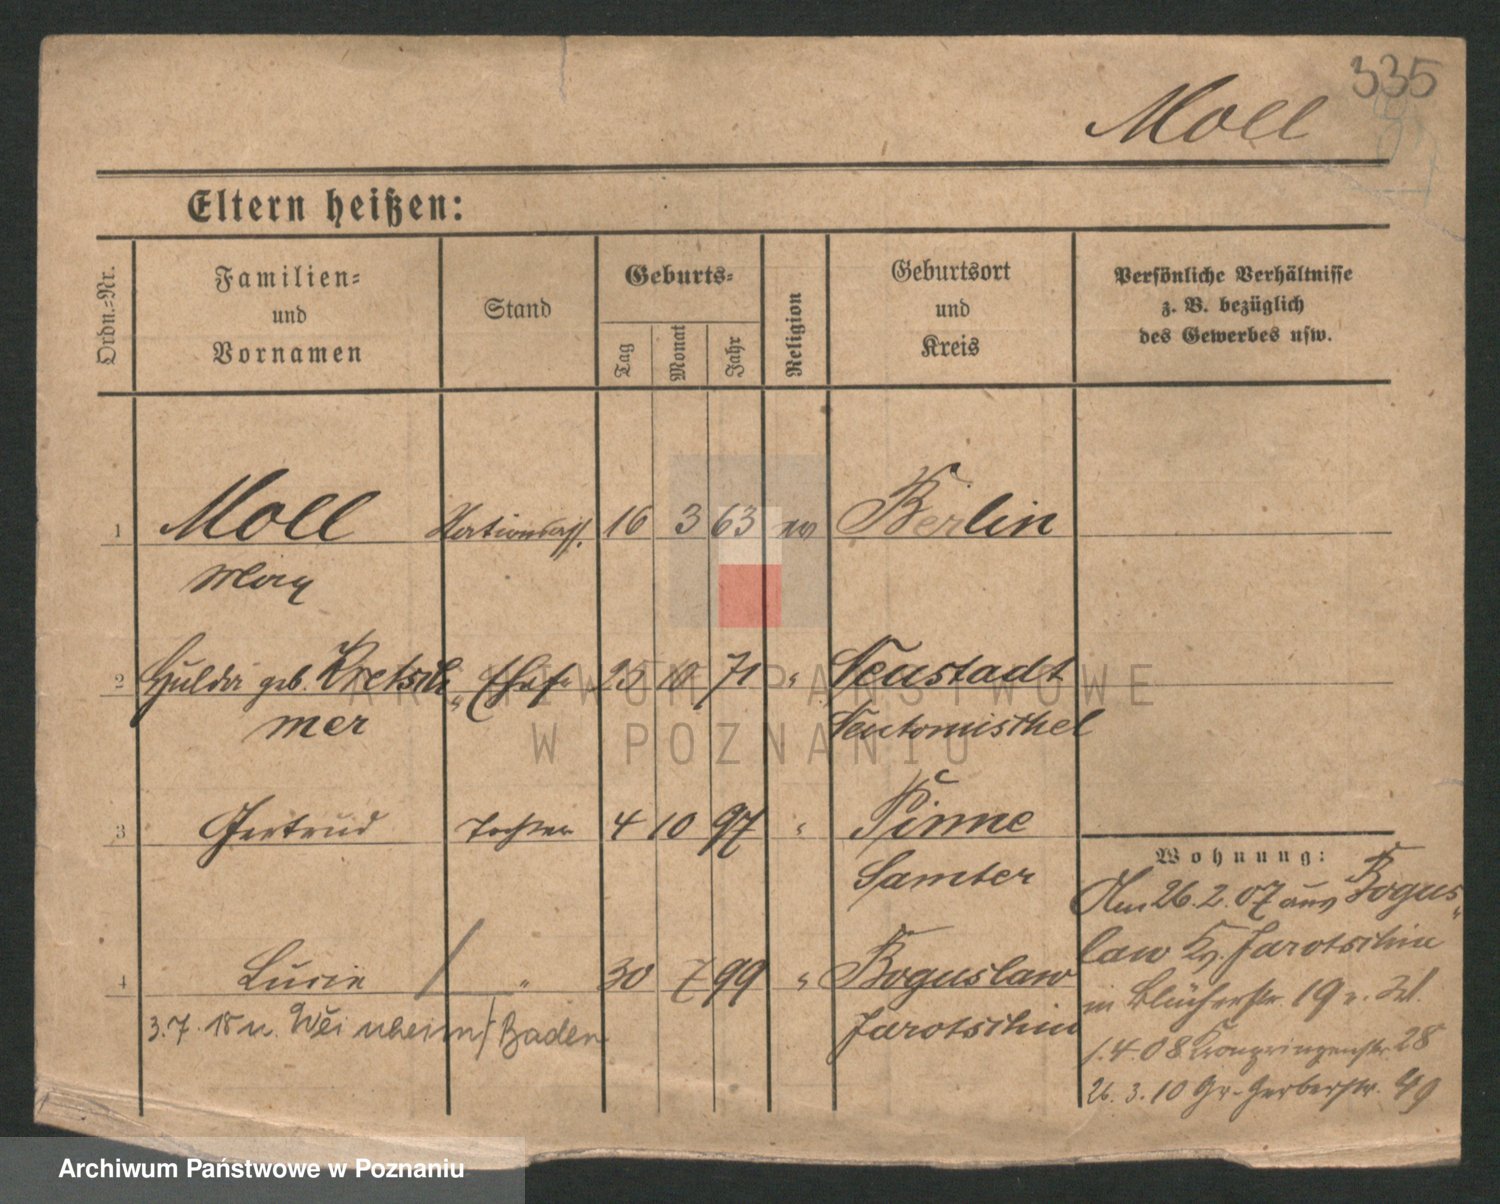 335
Moll
Eltern heißen:
Ordn.-Nr.
Familien-
und
Vornamen
Stand
Geburts-
Tag
Monat
Jahr
Religion
Geburtsort
und
Kreis
Persönliche Verhältnisse
z. B. bezüglich
des Gewerbes usw.
1 Moll Stationsass. 16 3 63 ev Berlin
Max
2 Hulda geb. Kretsch Ehefr 25 10 71 " Neustadt
mer Neutomischel
3 Gertrud Tochter 4 10 97 " Pinne
Samter
4 Lucie " 30 7 99 " Boguslaw
Jarotschin
3.7.18 n. Weinheim / Baden
Wohnung:
Am 26.2.07 aus Bogus
law Kr. Jarotschin
in Blücherstr. 19
1.4.08 Kronprinzenstr. 28
26.3.10 Gr. Gerberstr. 49
ARCHIWUM PAŃSTWOWE
W POZNANIU
Archiwum Państwowe w Poznaniu